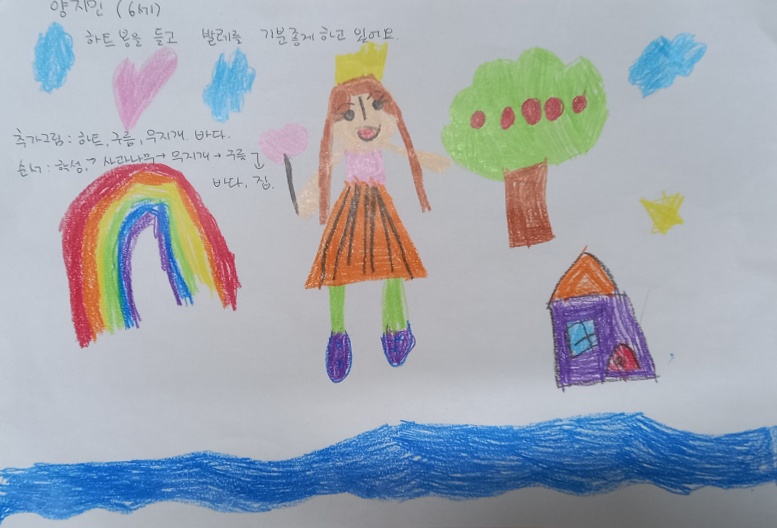 양지인 (6세)
하트봉을 들고 발레를 기분좋게 하고 있어요
추가그림 : 하트, 구름, 무지개. 바다.
순서 : 학성 → 사과나무 → 무지개 → 구름
바다, 집.